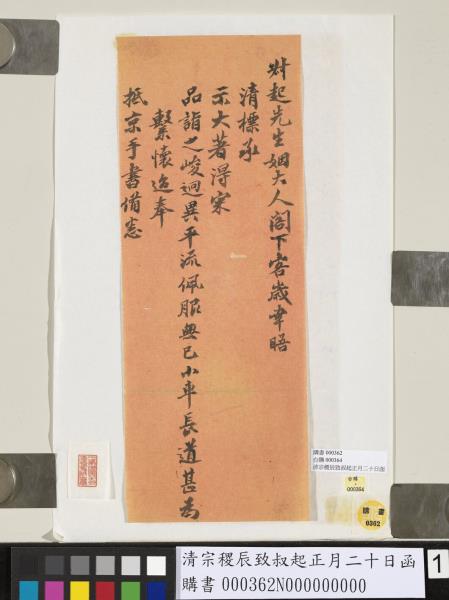 叔起先生姻大人閣下客歲幸晤
清標承
示大著得窺
品詣之峻迥異平流佩服無已小車長道甚為
繫懷迨奉
抵京手書備悉
購書 000362
000364
清宗稷辰致叔起正月二十日函
台購
000364
購書
0362
清宗稷辰致叔起正月二十日函
購書 000362N000000000
1